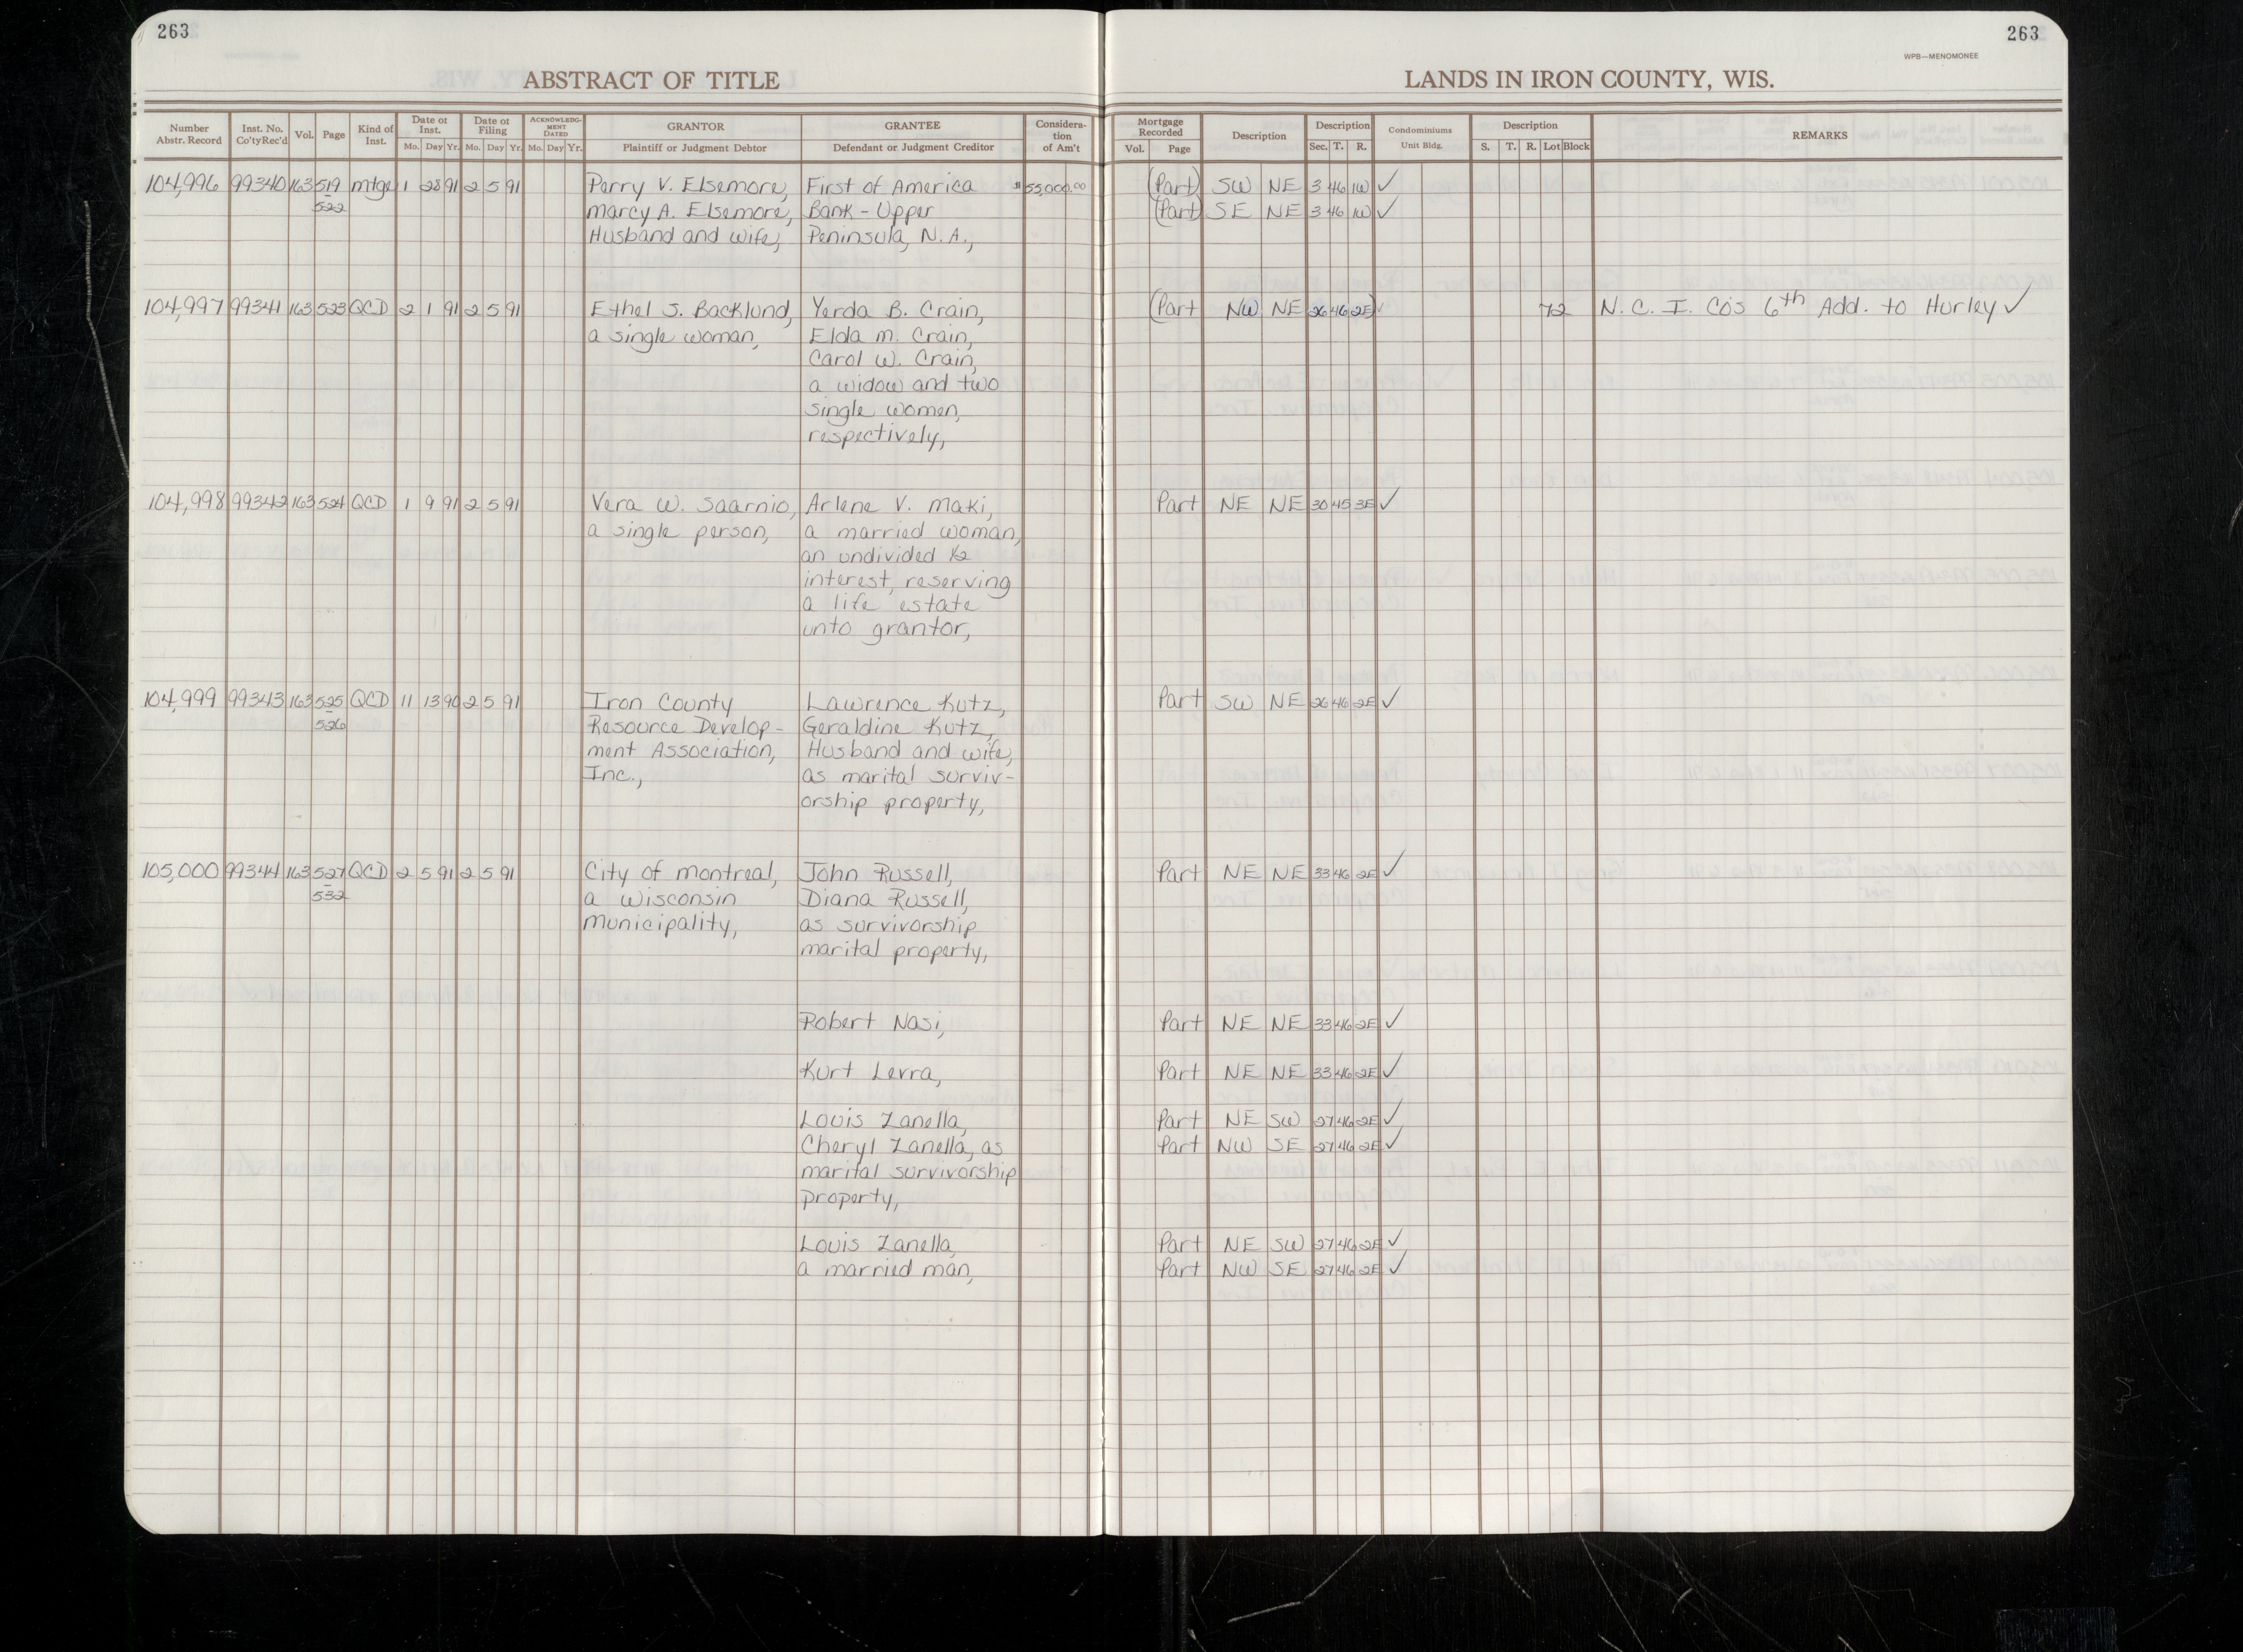 263
263
WPB—MENOMONEE
ABSTRACT OF TITLE
LANDS IN IRON COUNTY, WIS.
Number Abstr. Record Inst. No. Co'tyRec'd Vol. Page Kind of Inst. Date of Inst. Mo. Day Yr. Date of Filing Mo. Day Yr. ACKNOWLEDGMENT DATED Mo. Day Yr. GRANTOR Plaintiff or Judgment Debtor GRANTEE Defendant or Judgment Creditor Consideration of Am't Mortgage Recorded Vol. Page Description Description Sec. T. R. Condominiums Unit Bldg. Description S. T. R. Lot Block REMARKS
104,996 99340 163 519 mtge 1 28 91 2 5 91 Perry V. Elsemore, First of America $55,000.00 (Part) SW NE 3 46 1W ✓
522 Marcy A. Elsemore, Bank - Upper (Part) SE NE 3 46 1W ✓
Husband and wife, Peninsula, N.A.,
104,997 99341 163 523 QCD 2 1 91 2 5 91 Ethel S. Backlund, Yerda B. Crain, (Part NW NE 26 46 2E) ✓ 72 N. C. I. Co's 6th Add. to Hurley ✓
a single woman, Elda M. Crain,
Carol W. Crain,
a widow and two
single women,
respectively,
104,998 99342 163 524 QCD 1 9 91 2 5 91 Vera W. Saarnio, Arlene V. Maki, Part NE NE 30 45 3E ✓
a single person, a married woman,
an undivided ½
interest, reserving
a life estate
unto grantor,
104,999 99343 163 525 QCD 11 13 90 2 5 91 Iron County Lawrence Kutz, Part SW NE 26 46 2E ✓
- 526 Resource Develop- Geraldine Kutz,
ment Association, Husband and wife,
Inc., as marital surviv-
orship property,
105,000 99344 163 527 QCD 2 5 91 2 5 91 City of Montreal, John Russell, Part NE NE 33 46 2E ✓
- 532 a Wisconsin Diana Russell,
Municipality, as survivorship
marital property,
Robert Nasi, Part NE NE 33 46 2E ✓
Kurt Levra, Part NE NE 33 46 2E ✓
Louis Zanella, Part NE SW 27 46 2E ✓
Cheryl Zanella, as Part NW SE 27 46 2E ✓
marital survivorship
property,
Louis Zanella, Part NE SW 27 46 2E ✓
a married man, Part NW SE 27 46 2E ✓